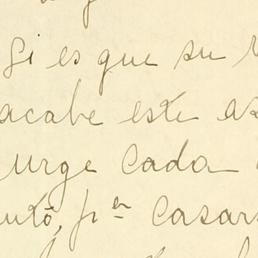 Si es que su
acabe este
urge cada
pr casar